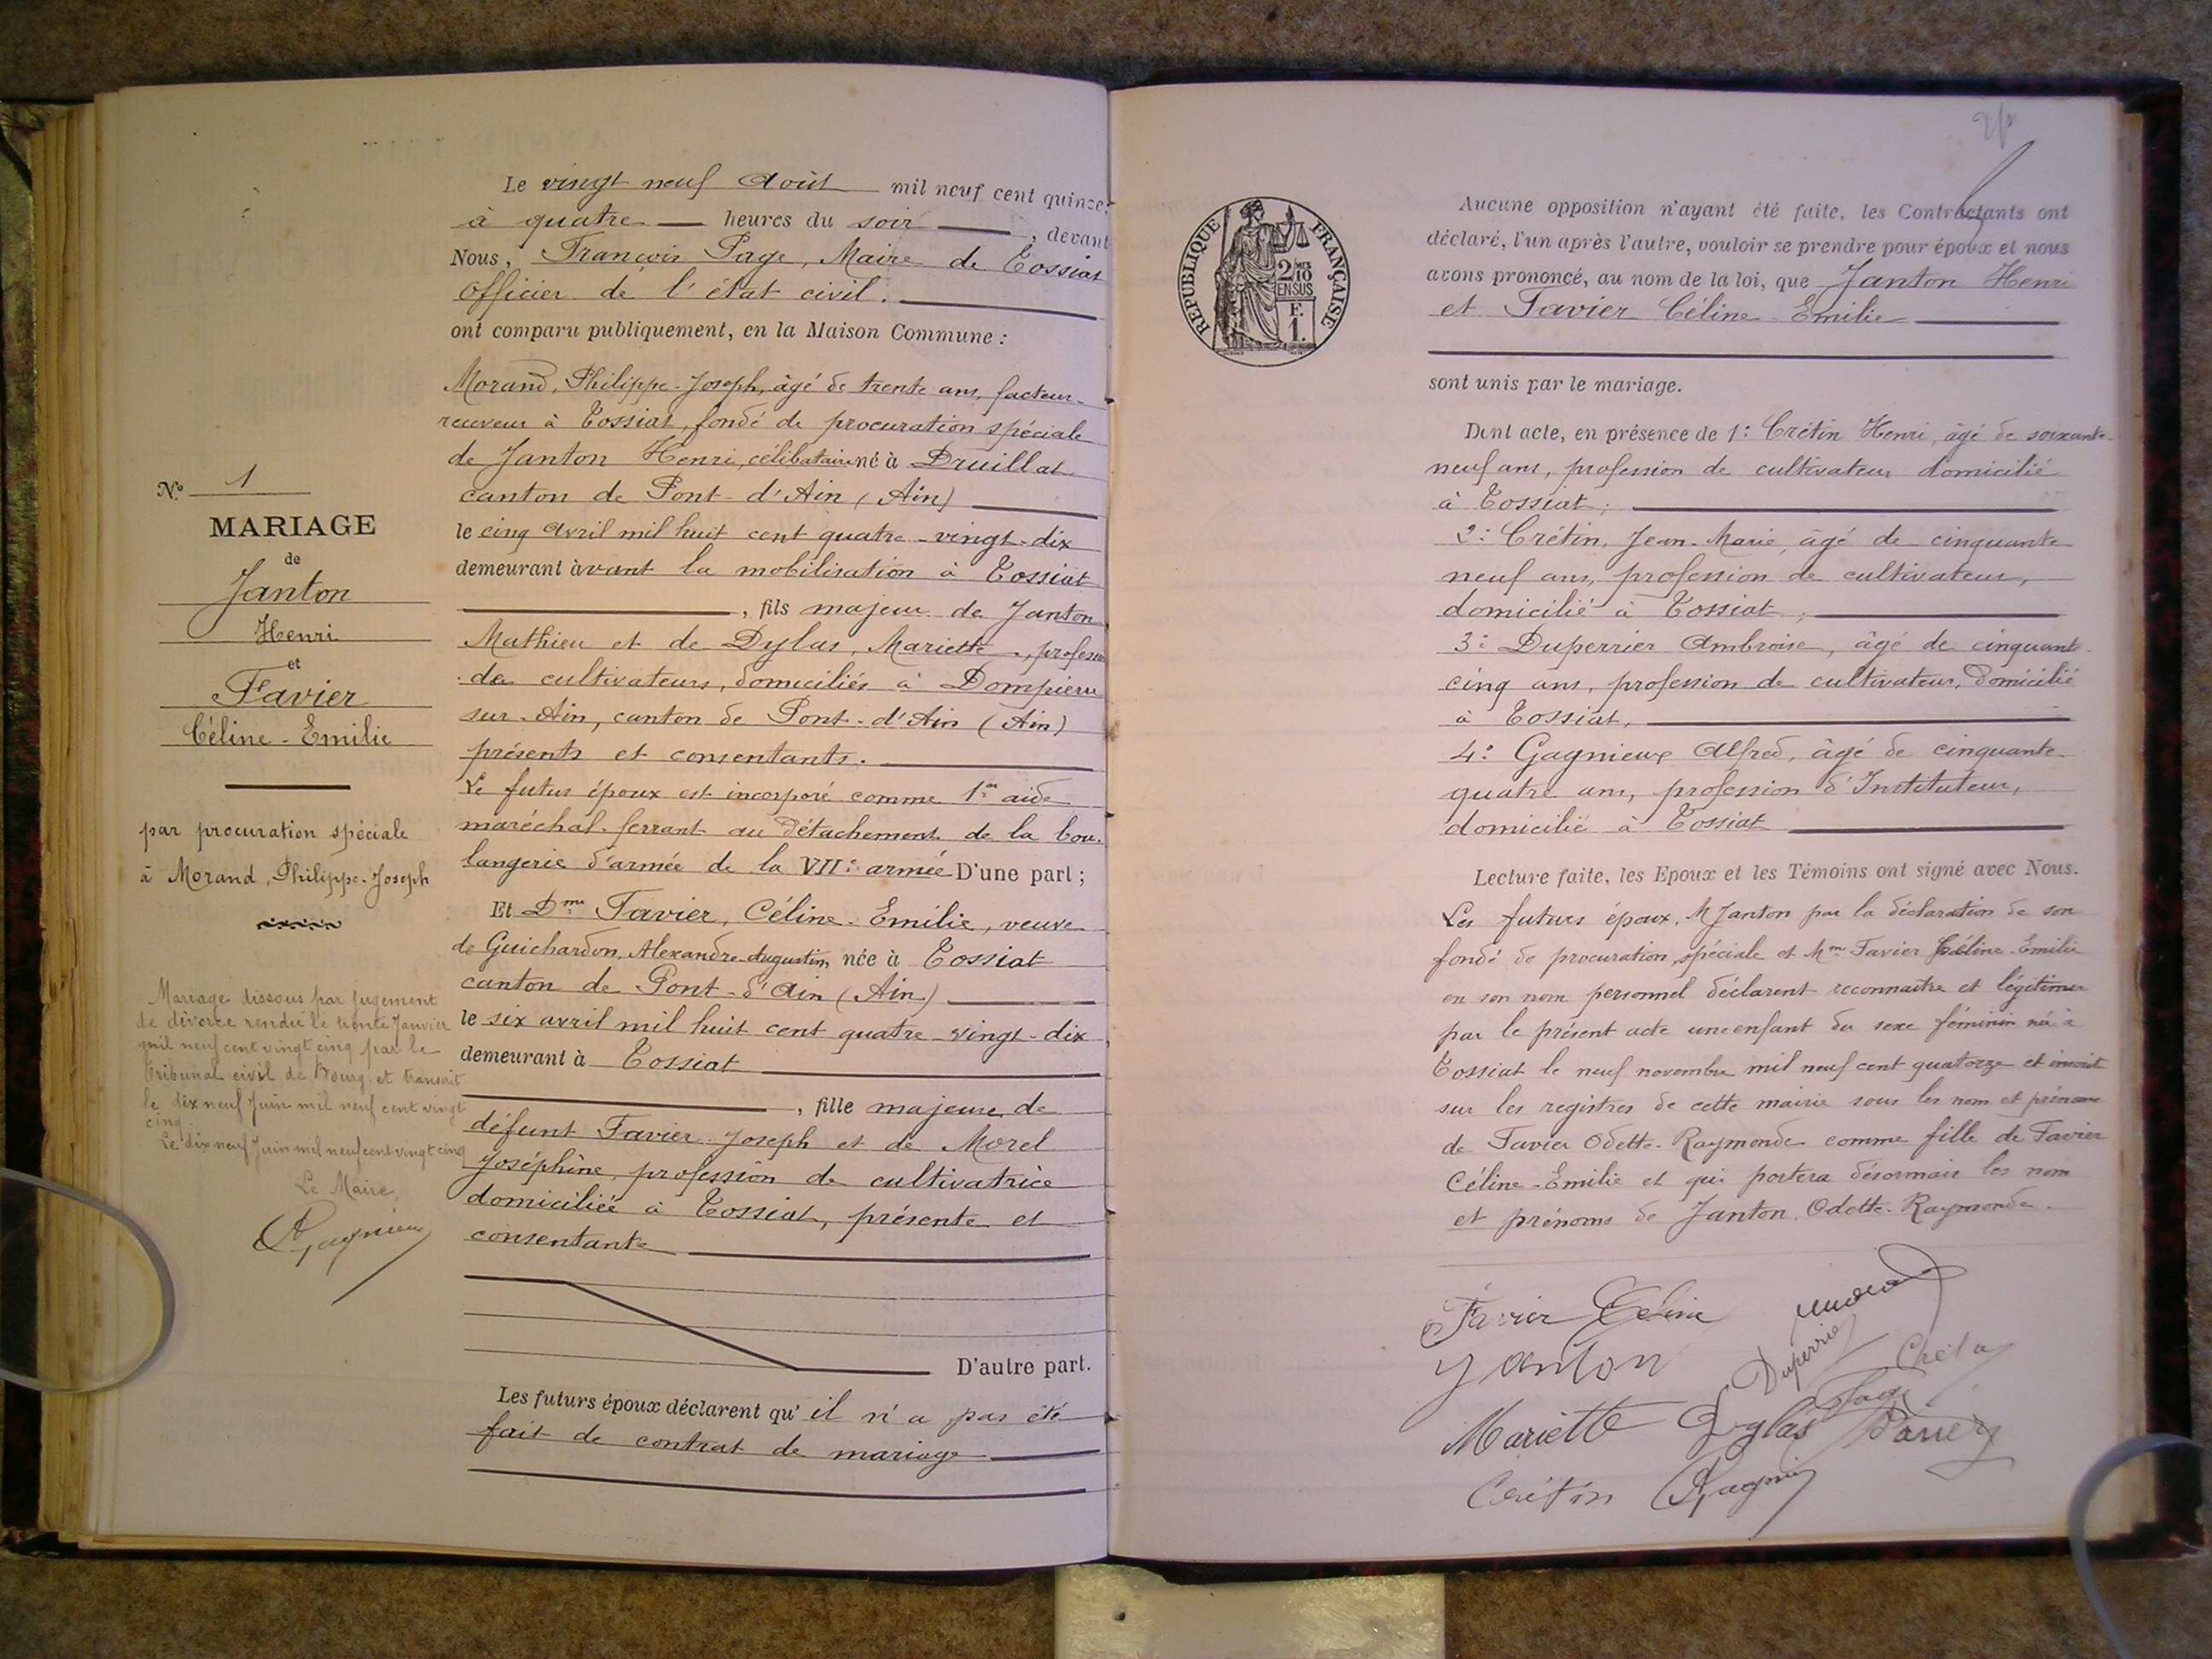 Nº 1
MARIAGE
de
Janton
Henri
et
Favier
Céline-Emilie
par procuration spéciale
à Morand, Philippe-Joseph
Mariage dissous par jugement
de divorce rendu le trente Janvier
mil neuf cent vingt cinq par le
Tribunal civil de Bourg et transcrit
le dix neuf Juin mil neuf cent vingt
cinq.
Le dix neuf Juin mil neuf cent vingt cinq
Le Maire,
Le vingt neuf Août mil neuf cent quinze,
à quatre heures du soir, devant
Nous, François Page, Maire de Tossiat
Officier de l'état civil.
ont comparu publiquement, en la Maison Commune :
Morand, Philippe-Joseph, âgé de trente ans, facteur-
receveur à Tossiat, fondé de procuration spéciale
de Janton Henri, célibataire né à Druillat
canton de Pont-d'Ain (Ain)
le cinq Avril mil huit cent quatre-vingt-dix
demeurant avant la mobilisation à Tossiat
, fils majeur de Janton
Mathieu et de Dylas, Mariette, profession
de cultivateurs, domiciliés à Dompierre
sur-Ain, canton de Pont-d'Ain (Ain)
présents et consentants.
Le futur époux est incorporé comme 1er aide
maréchal-ferrant au détachement de la bou-
langerie d'armée de la VIIe armée D'une part ;
Et Dme Favier, Céline-Emilie, veuve
de Guichardon, Alexandre-Augustin, née à Tossiat
canton de Pont-d'Ain (Ain)
le six avril mil huit cent quatre-vingt-dix
demeurant à Tossiat
, fille majeure de
défunt Favier Joseph et de Morel
Joséphine, profession de cultivatrice
domiciliée à Tossiat, présente et
consentante
D'autre part.
Les futurs époux déclarent qu'il n'a pas été
fait de contrat de mariage
RÉPUBLIQUE FRANÇAISE
2/10 EN SUS
F.
1.
Aucune opposition n'ayant été faite, les Contractants ont
déclaré, l'un après l'autre, vouloir se prendre pour époux et nous
avons prononcé, au nom de la loi, que Janton Henri
et Favier Céline-Emilie
sont unis par le mariage.
Dont acte, en présence de 1º Crétin Henri, âgé de soixante-
neuf ans, profession de cultivateur domicilié
à Tossiat ;
2º Crétin, Jean-Marie, âgé de cinquante
neuf ans, profession de cultivateur,
domicilié à Tossiat ;
3º Duperrier Ambroise, âgé de cinquante-
cinq ans, profession de cultivateur, domicilié
à Tossiat,
4º Gagnieux Alfred, âgé de cinquante-
quatre ans, profession d'Instituteur,
domicilié à Tossiat
Lecture faite, les Epoux et les Témoins ont signé avec Nous.
Les futurs époux, M Janton par la déclaration de son
fondé de procuration spéciale et Mme Favier Céline-Emilie
en son nom personnel déclarent reconnaître et légitimer
par le présent acte une enfant du sexe féminin née à
Tossiat le neuf novembre mil neuf cent quatorze et inscrite
sur les registres de cette mairie sous les nom et prénoms
de Favier Odette-Raymonde comme fille de Favier
Céline-Emilie et qui portera désormais les nom
et prénoms de Janton, Odette-Raymonde.
Favier Céline
Morand
Janton
Duperrier
Crétin
Mariette Dylas
Page
Crétin